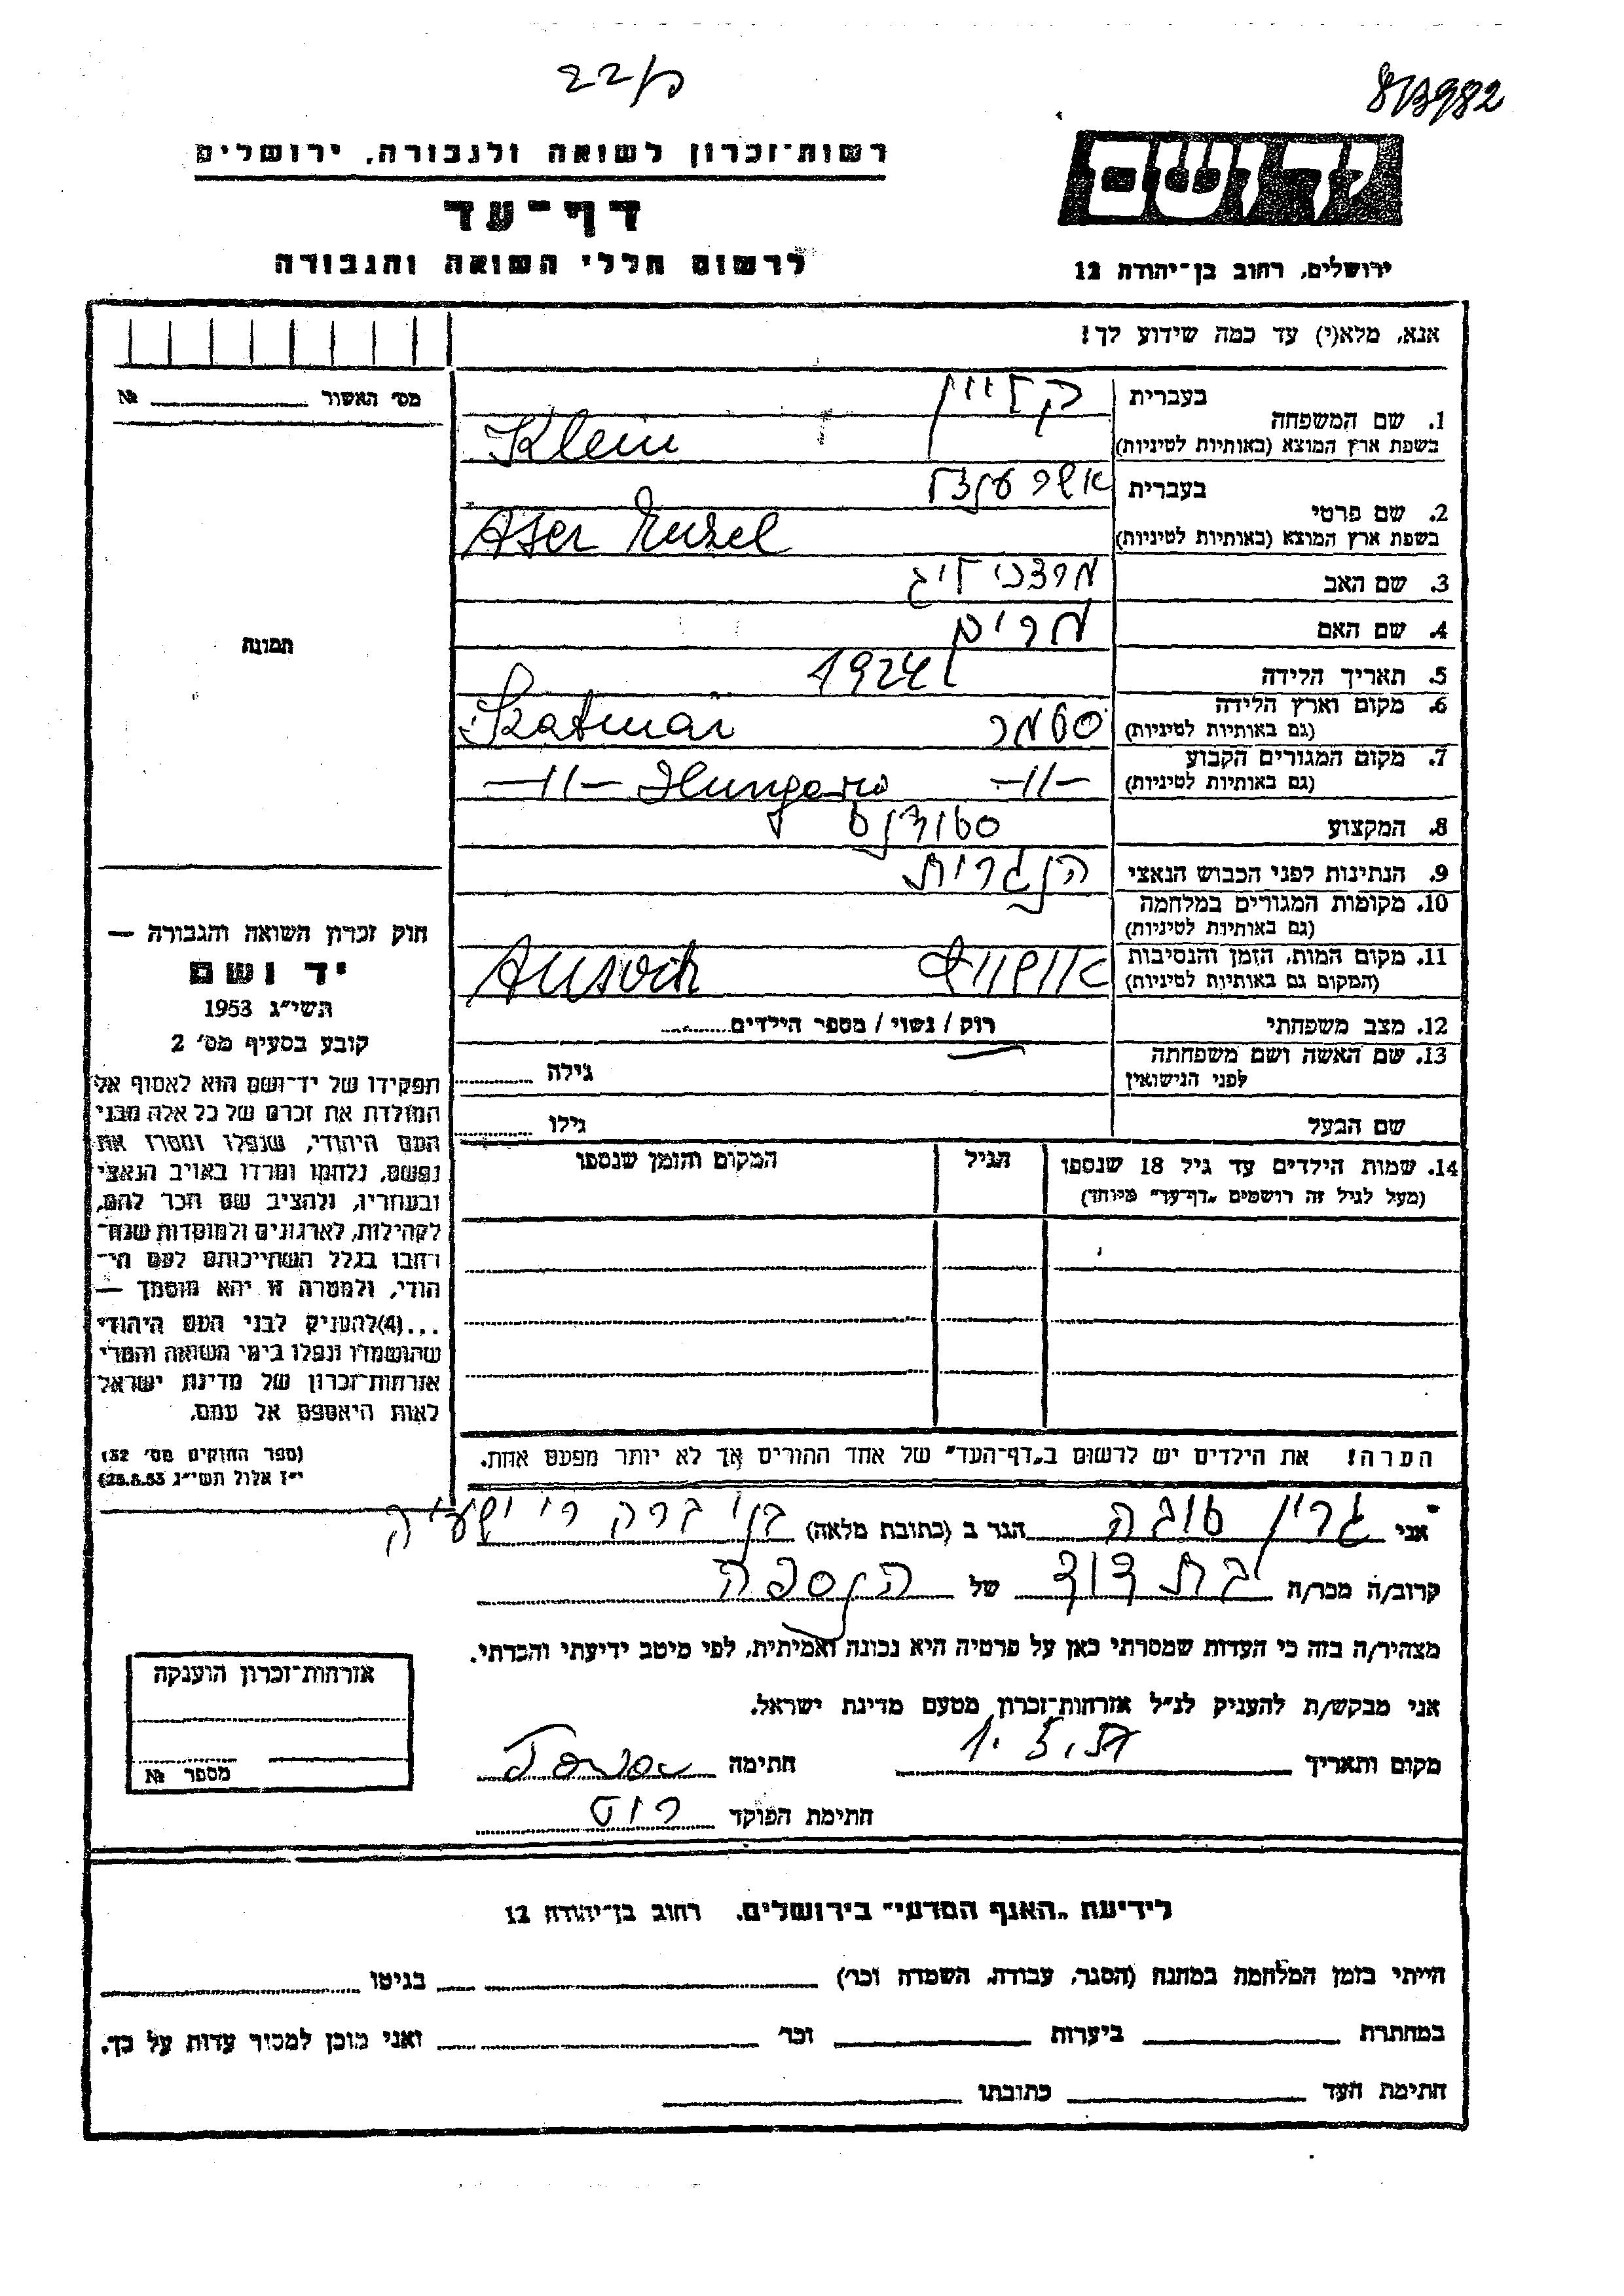 22/כ
רשות־זכרון לשואה ולגבורה, ירושלים
דף־עד
לרשום חללי השואה והגבורה
יד ושם
ירושלים, רחוב בן־יהודה 12
אנא, מלא(י) עד כמה שידוע לך!
מס׳ האשור № 
1. שם המשפחה
בעברית קליין
בשפת ארץ המוצא (באותיות לטיניות) Klein
2. שם פרטי
בעברית אשר
בשפת ארץ המוצא (באותיות לטיניות) Aser
3. שם האב מרדכי
4. שם האם מרים
5. תאריך הלידה 1924
6. מקום וארץ הלידה
(גם באותיות לטיניות) סטמר Szatmár
7. מקום המגורים הקבוע
(גם באותיות לטיניות) –11– –11– Hungaria
8. המקצוע סטודנט
9. הנתינות לפני הכבוש הנאצי הנגרית
10. מקומות המגורים במלחמה
(גם באותיות לטיניות)
11. מקום המות, הזמן והנסיבות
(המקום גם באותיות לטיניות) אושוויץ Ausvitz
12. מצב משפחתי רוק / נשוי / מספר הילדים
13. שם האשה ושם משפחתה
לפני הנישואין גילה
שם הבעל גילו
14. שמות הילדים עד גיל 18 שנספו
(מעל לגיל זה רושמים „דף־עד״ מיוחד)
הגיל
המקום והזמן שנספו
הערה! את הילדים יש לרשום ב„דף־העד״ של אחד ההורים אך לא יותר מפעם אחת.
תמונה
חוק זכרון השואה והגבורה —
יד ושם
תשי״ג 1953
קובע בסעיף מס׳ 2
תפקידו של יד־ושם הוא לאסוף אל
המולדת את זכרם של כל אלה מבני
העם היהודי, שנפלו ומסרו את
נפשם, נלחמו ומרדו באויב הנאצי
ובעוזריו, ולהציב שם וזכר להם,
לקהילות, לארגונים ולמוסדות שנח־
רבו בגלל השתייכותם לעם הי־
הודי, ולמטרה זו יהא מוסמך —
...(4) להעניק לבני העם היהודי
שהושמדו ונפלו בימי השואה והמרי
אזרחות־זכרון של מדינת ישראל
לאות היאספם אל עמם.
(ספר החוקים מס׳ 132
י״ז אלול תשי״ג 28.8.53)
אני גרין טובה הגר ב (כתובת מלאה) בני ברק רי ישעיה
קרוב/ה מכר/ה בת דוד של הנספה
מצהיר/ה בזה כי העדות שמסרתי כאן על פרטיה היא נכונה ואמיתית, לפי מיטב ידיעתי והכרתי.
אני מבקש/ת להעניק לנ״ל אזרחות־זכרון מטעם מדינת ישראל.
מקום ותאריך חתימה
חתימת הפוקד רוט
אזרחות־זכרון הוענקה
מספר №
לידיעת „האגף המדעי״ בירושלים. רחוב בן־יהודה 12
הייתי בזמן המלחמה במחנה (הסגר, עבודה, השמדה וכו׳) בגיטו
במחתרת ביערות וכו׳ ואני מוכן למסור עדות על כך.
חתימת העד כתובתו